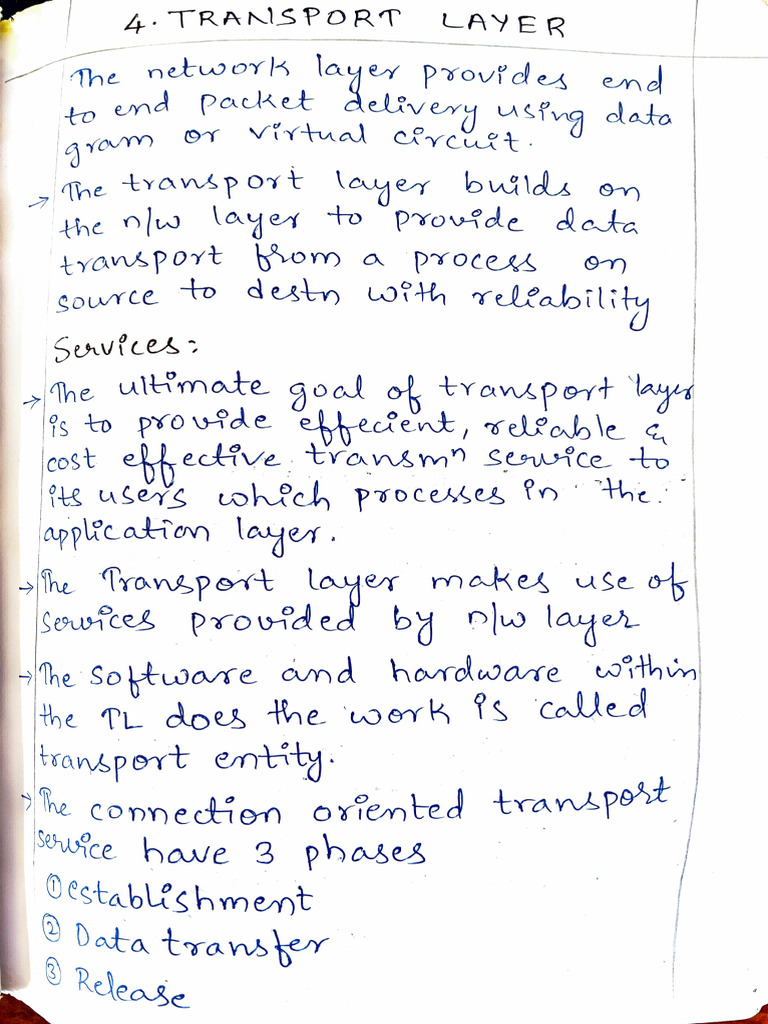 4. TRANSPORT LAYER
The network layer provides end
to end packet delivery using data
gram or virtual circuit.
→ The transport layer builds on
the n/w layer to provide data
transport from a process on
source to destn with reliability
Services:
→ The ultimate goal of transport layer
is to provide effecient, reliable &
cost effective transmⁿ service to
its users which processes in the.
application layer.
→ The Transport layer makes use of
services provided by n/w layer
→ The software and hardware within
the TL does the work is called
transport entity.
→ The connection oriented transport
service have 3 phases
① establishment
② Data transfer
③ Release